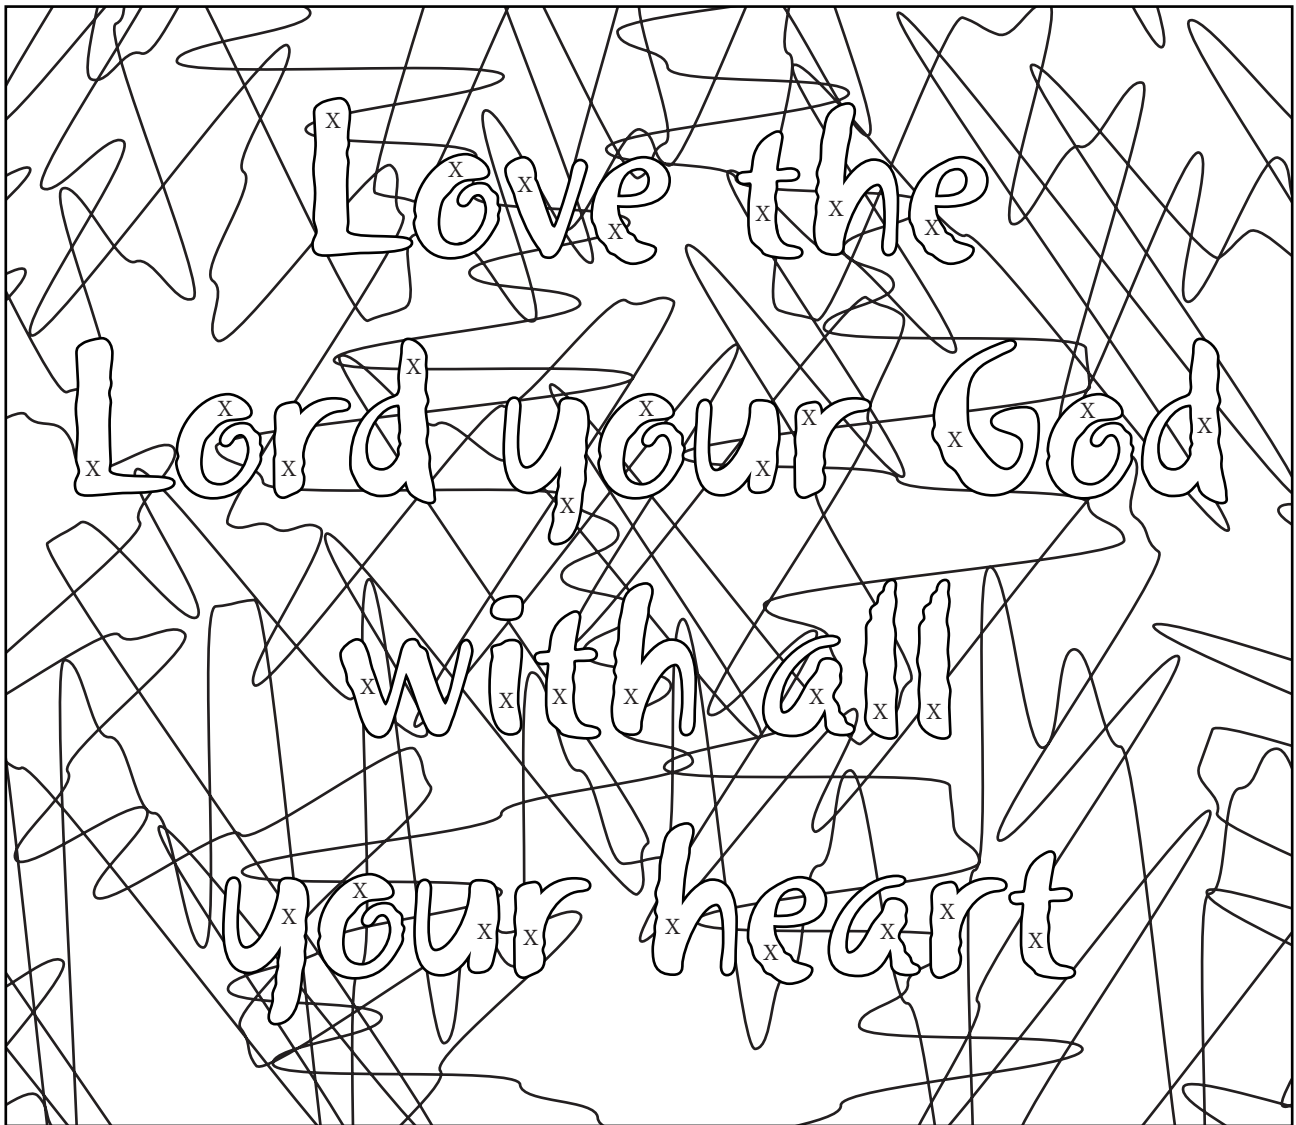 Love the
Lord your God
with all
your heart